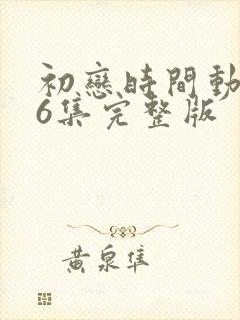 初戀時間動
6集完整版
黃泉隼